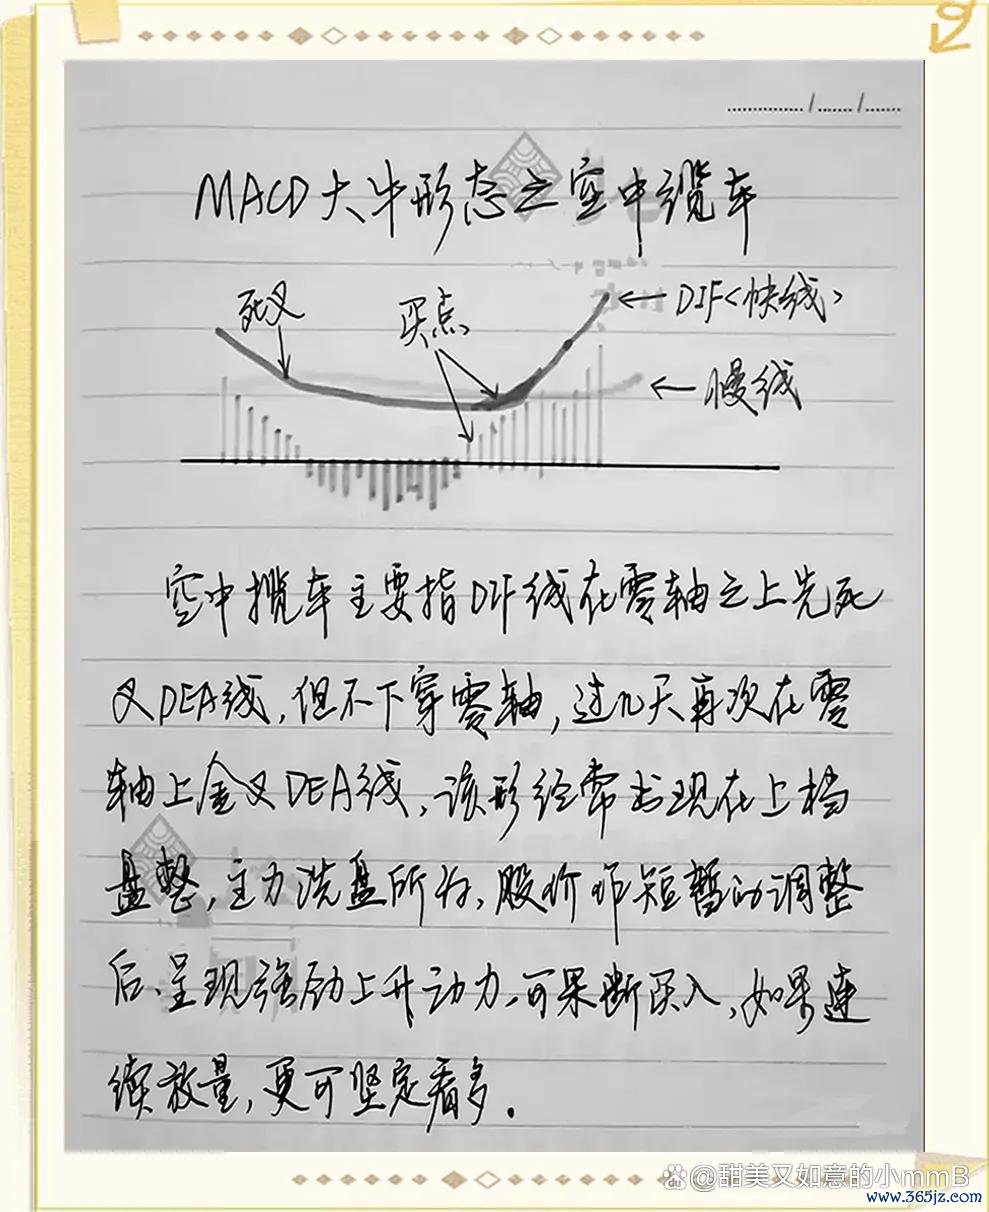 MACD大牛形态之空中缆车
死叉
买点
DIF<快线>
慢线
空中揽车主要指DIF线在零轴之上先死
叉DEA线,但不下穿零轴,过几天再次在零
轴上金叉DEA线,该形经常出现在上档
盘整,主力洗盘所为,股价作短暂的调整
后、呈现强劲上升动力,可果断买入,如果连
续放量,更可坚定看多.
@甜美又如意的小mmB
www.365jz.com